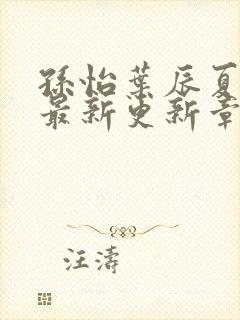 孫怡葉辰夏
最新更新章
汪濤